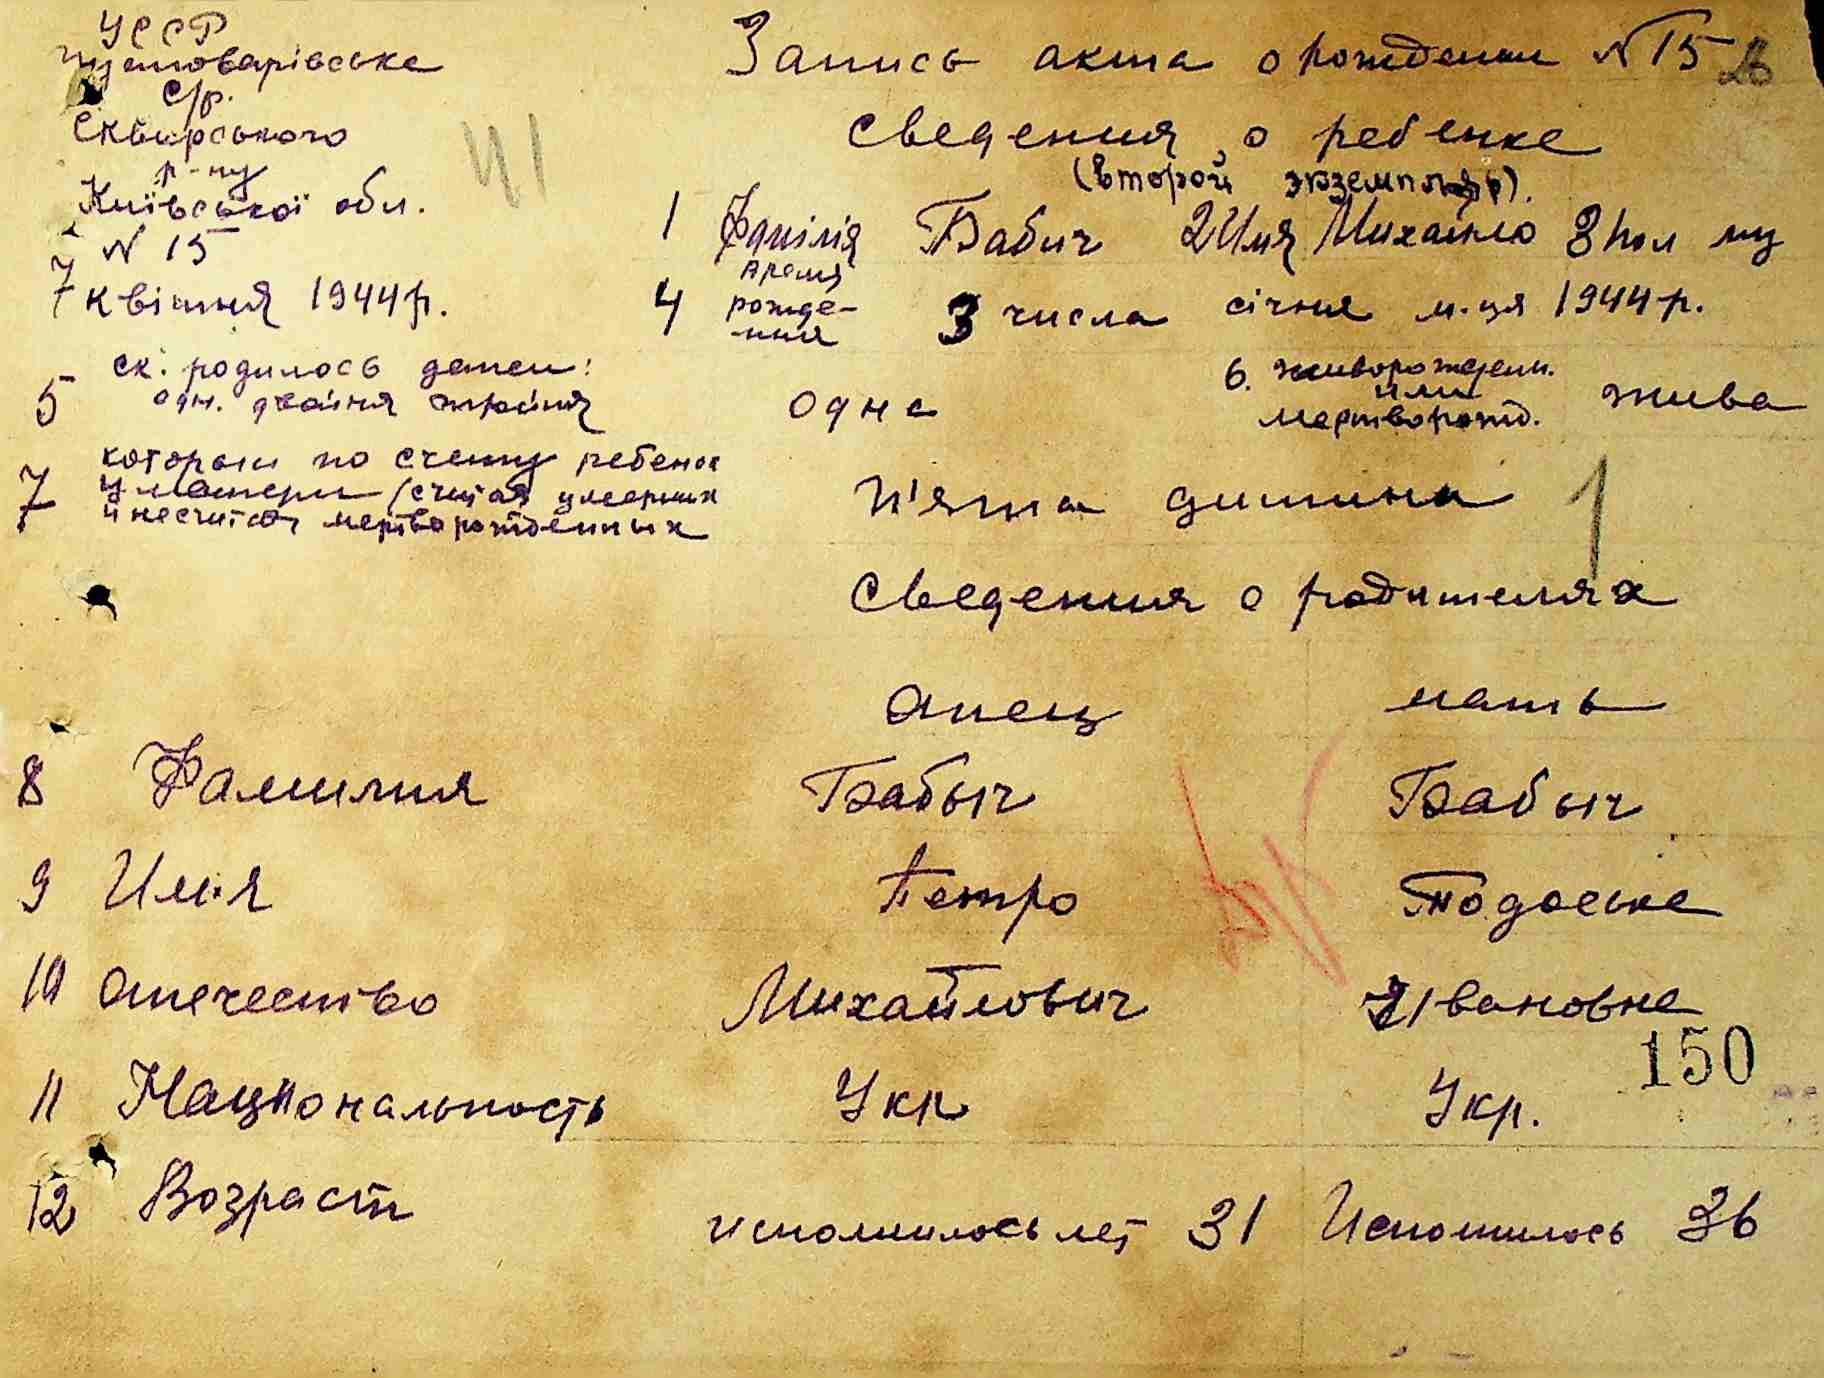 УССР
Пустоварівська
с/р.
Сквирського
р-ну
Київської обл.
N 15
7 квітня 1944 р.
41
Запись акта о рождении N 15
Сведения о ребенке
(второй экземпляр).
1 Фамілія Бабич 2 Имя Михайло 3 пол му
4 время рожде-ния 3 числа січня м-ця 1944 р.
5 ск. родилось детей: одн. двойня тройня одна 6. живорожден. или мертворожд. жива
7 которым по счету ребенок у матери (считая умерших и несчитая мертворожденных п'ята дитина
1
Сведения о родителях
Отец мать
8 Фамилия Бабыч Бабыч
9 Имя Петро Тодоська
10 Отечество Михайлович Ивановна
150
11 Национальность Укр Укр.
12 Возраст исполнилось лет 31 Исполнилось 36